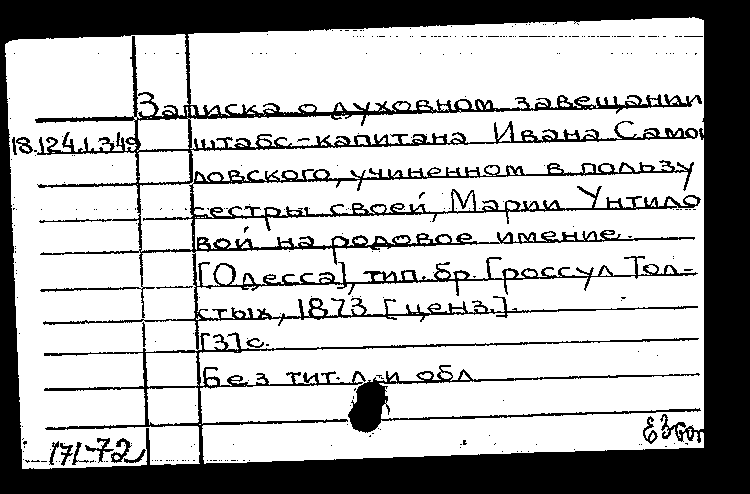 Записка о духовном завещании
18.124.1.349 штабс.-капитана Ивана Само
ловского, учиненном в пользу
сестры своей, Марии Унтило
вой на родовое имение.
[Одесса], тип. бр. Гроссул Тол-
стых, 1873 [ценз.].
[3] с.
Без тит. л. и обл
171-72